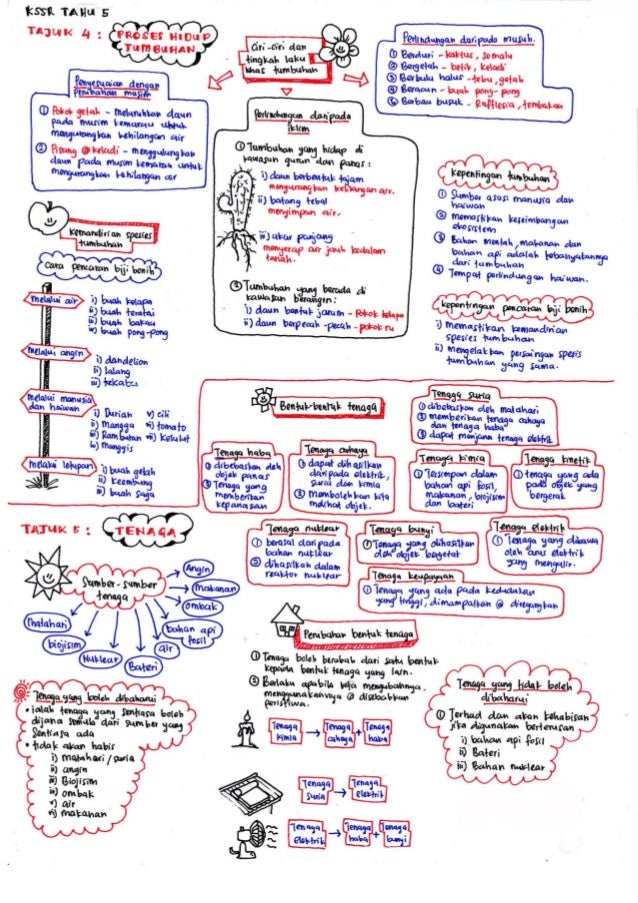 KSSR TAHU 5
TAJUK 4 : PROSES HIDUP
TUMBUHAN
Ciri-ciri dan
tingkah laku
khas tumbuhan
Perlindungan daripada musuh.
① Berduri - kaktus, semalu
② Bergetah - betik, keladi
③ Berbulu halus - tebu, getah
④ Beracun - buah pong-pong
⑤ Berbau busuk - Rafflesia, tembakau
Penyesuaian dengan
perubahan musim
① Pokok getah - meluruhkan daun
pada musim kemarau untuk
mengurangkan kehilangan air
② Pisang @ keladi - menggulungkan
daun pada musim kemarau untuk
mengurangkan kehilangan air
Perlindungan daripada
iklim
① Tumbuhan yang hidup di
kawasan gurun dan panas :
i) daun berbentuk tajam
mengurangkan kehilangan air.
ii) batang tebal
menyimpan air.
iii) akar panjang
menyerap air jauh kedalam
tanah.
② Tumbuhan yang berada di
kawasan berangin :
i) daun bentuk jarum - Pokok kelapa
ii) daun berpecah-pecah - pokok ru
kepentingan tumbuhan
① Sumber asas manusia dan
haiwan
② memastikan keseimbangan
ekosistem
③ Bahan mentah, makanan dan
bahan api adalah kebanyakannya
dari tumbuhan
④ Tempat perlindungan haiwan.
kepentingan pencaran biji benih
i) memastikan kemandirian
spesies tumbuhan
ii) mengelakkan persaingan spesis
tumbuhan yang sama.
Kemandirian spesies
tumbuhan
cara pencaran biji benih
melalui air
i) buah kelapa
ii) buah teratai
iii) buah bakau
iv) buah pong-pong
melalui angin
i) dandelion
ii) lalang
iii) kekabu
melalui manusia
dan haiwan
i) Durian v) cili
ii) Mangga vi) tomato
iii) Rambutan vii) kelulut
iv) manggis
melalui letupan
i) buah getah
ii) keembung
iii) buah saga
Bentuk-bentuk tenaga
Tenaga suria
① dibebaskan oleh matahari
② memberikan tenaga cahaya
dan tenaga haba
③ dapat menjana tenaga elektrik
Tenaga haba
① dibebaskan oleh
objek panas
② Tenaga yang
memberikan
kepanasan
Tenaga cahaya
① dapat dihasilkan
daripada elektrik,
suria dan kimia
② Membolehkan kita
melihat objek.
Tenaga kimia
① Tersimpan dalam
bahan api fosil,
makanan, biojisim
dan bateri
Tenaga kinetik
① tenaga yang ada
pada objek yang
bergerak
Tenaga nuklear
① berasal daripada
bahan nuklear
② dihasilkan dalam
reaktor nuklear
Tenaga bunyi
① Tenaga yang dihasilkan
oleh objek bergetar
Tenaga elektrik
① Tenaga yang dibawa
oleh arus elektrik
yang mengalir.
Tenaga keupayaan
① Tenaga yang ada pada kedudukan
yang tinggi, dimampatkan @ diregangkan
TAJUK 5 : TENAGA
Sumber-sumber
tenaga
Angin
makanan
ombak
bahan api
fosil
air
Bateri
Nuklear
biojisim
matahari
Perubahan bentuk tenaga
① Tenaga boleh berubah dari satu bentuk
kepada bentuk tenaga yang lain.
② Berlaku apabila kita mengubahnya,
menggunakannya @ disebabkan
peristiwa.
Tenaga kimia → Tenaga cahaya + Tenaga haba
Tenaga suria → Tenaga elektrik
Tenaga elektrik → Tenaga haba + Tenaga bunyi
Tenaga yang boleh dibaharui
• ialah tenaga yang sentiasa boleh
dijana semula dari sumber yang
sentiasa ada
• tidak akan habis
i) matahari / suria
ii) angin
iii) Biojisim
iv) ombak
v) air
vi) makanan
Tenaga yang tidak boleh
dibaharui
① Terhad dan akan kehabisan
jika digunakan berterusan
i) bahan api fosil
ii) Bateri
iii) Bahan nuklear